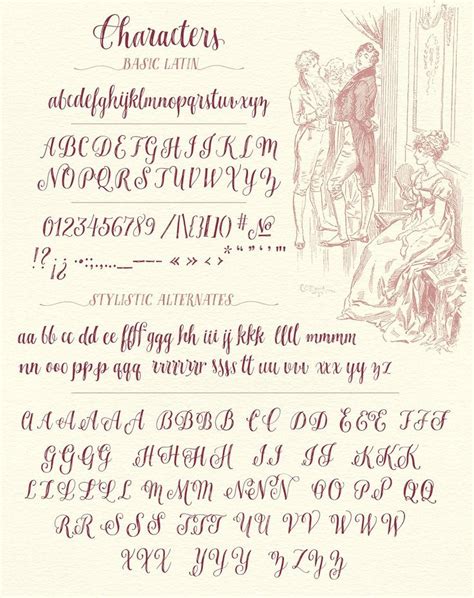 Characters
BASIC LATIN
abcdefghijklmnopqrstuvwxyz
ABCDEFGHIJKLM
NOPQRSTUVWXYZ
0123456789 /|\{}[]() # №
!"¡¿ •:;.,...–—-- « » ‹ › * " " ' ' " '
STYLISTIC ALTERNATES
aa bb cc dd ee ffff ggg hh iii ij kkk llll mmmm
nn ooo pppp qqq rrrrrrr ssss ttt uu vvv xxx yy zz
AAAAA BBBB CC DD EEE FFF
GGGG HHHH II JJ KKKK
LLLLLL MMM NNNN OO PP QQ
RR SSSS TTT UU VV WW
XXX YYY ZZZ